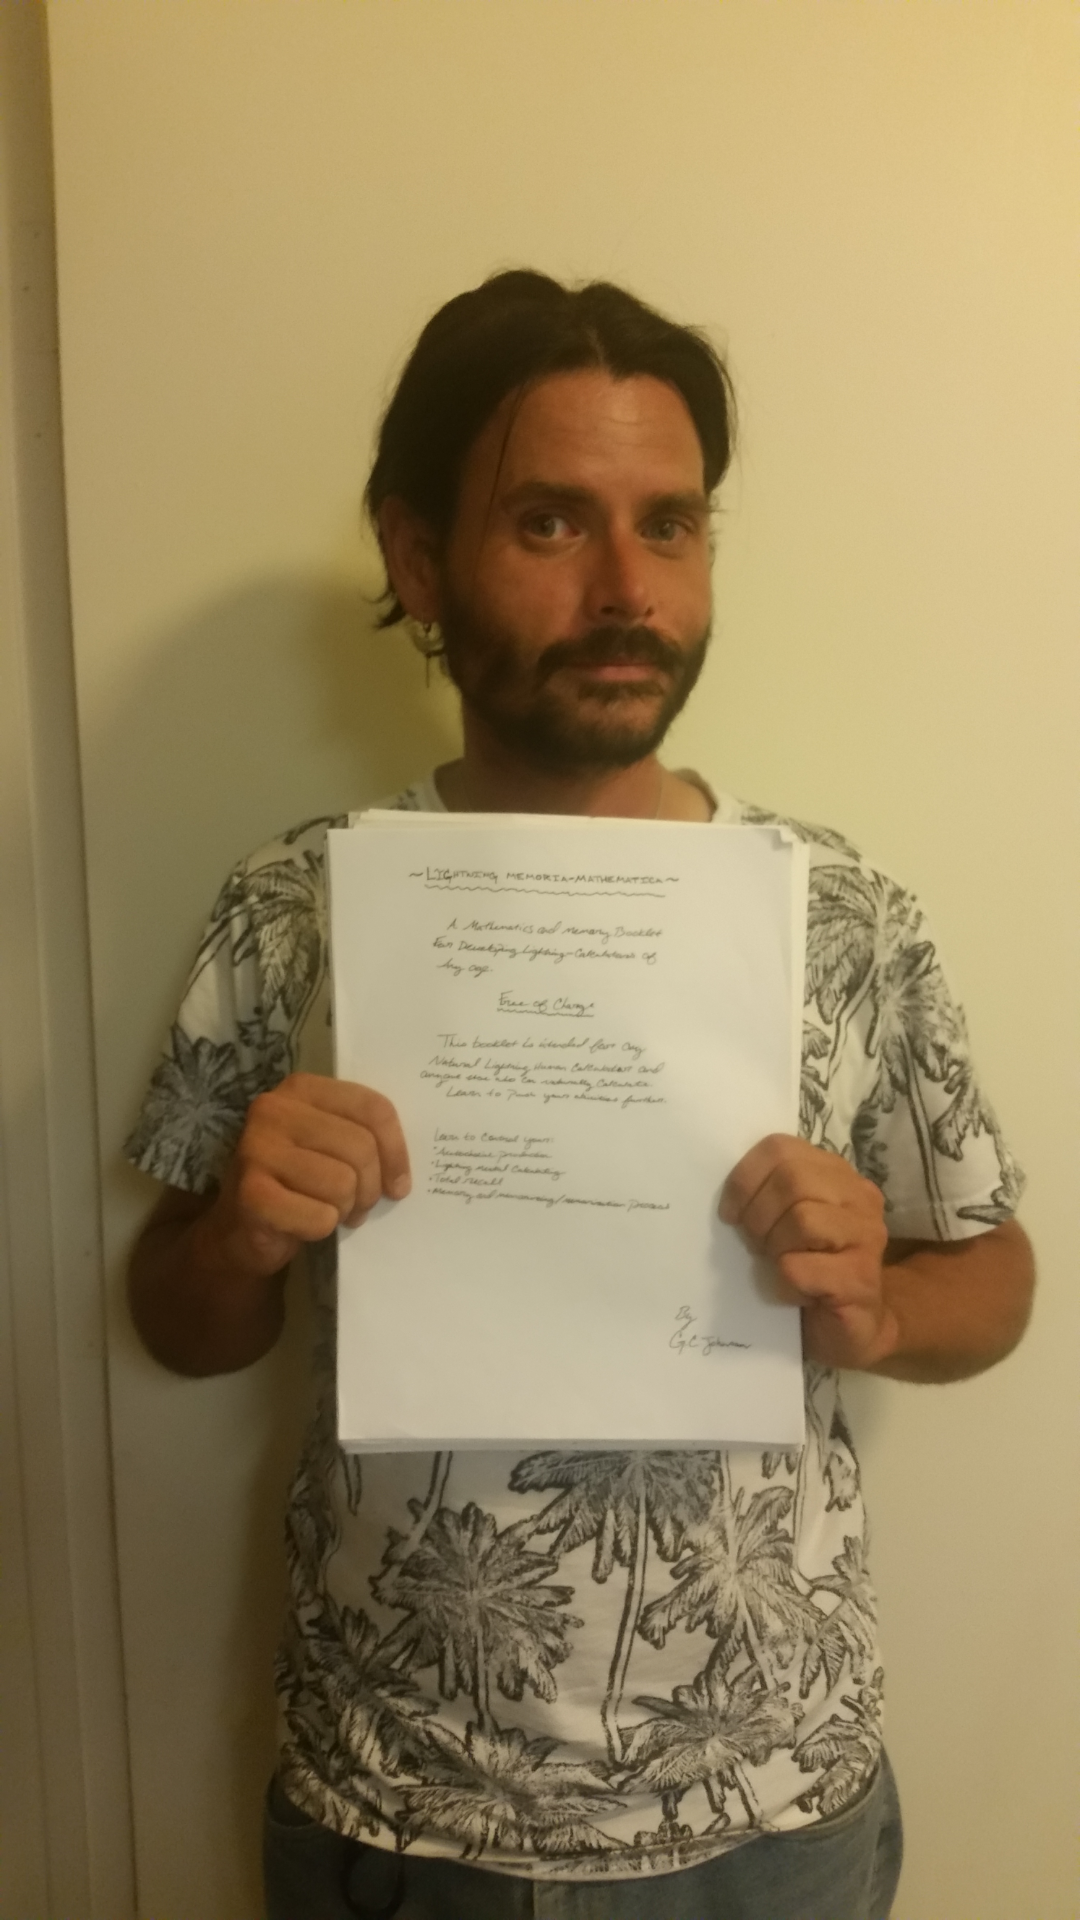 ~ LIGHTNING MEMORIA-MATHEMATICA ~
A Mathematics and Memory Booklet
For Developing Lightning-Calculators of
Any age.
Free of Charge
This booklet is intended for any
Natural Lightning Human Calculators and
anyone else who can naturally Calculate.
Learn to your further.
Learn to Control your:
• production
• Lightning mental Calculating
• Total recall
• Memory and memorizing/memorization process
By
G.C Johnson